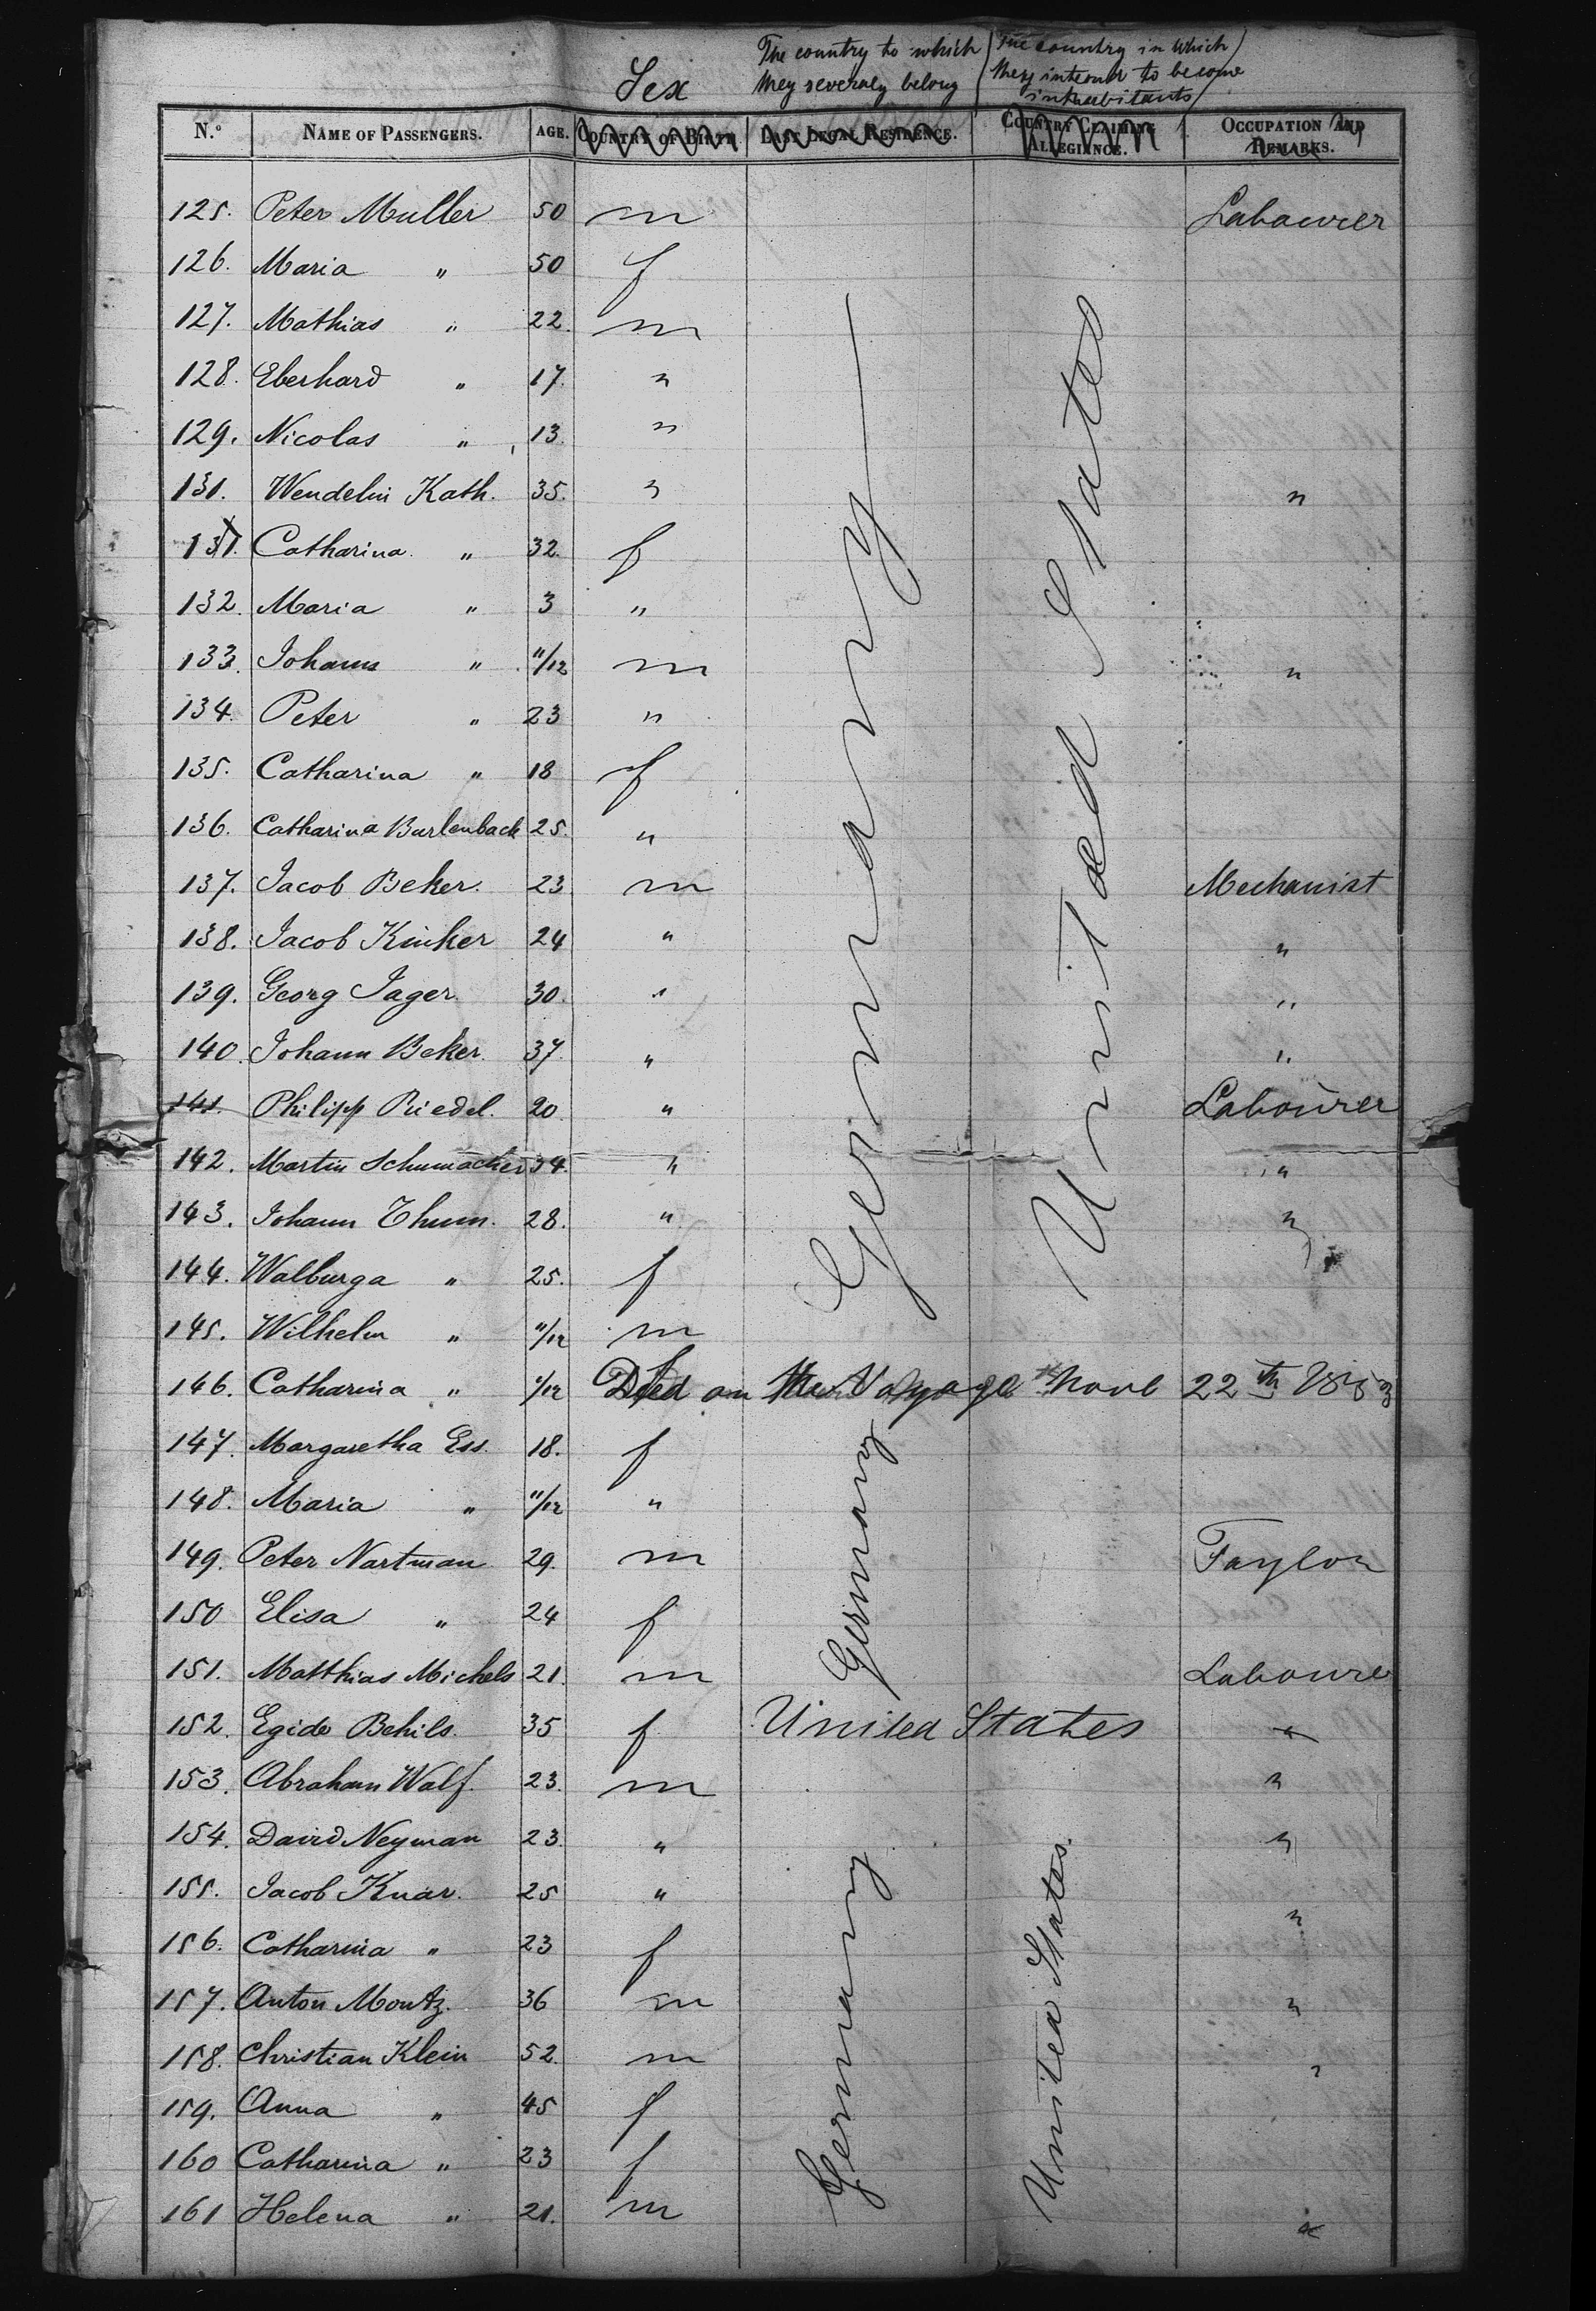 Sex The country to which they severaly belong The country in which they intend to become inhabitants
N.º NAME OF PASSENGERS. AGE. COUNTRY OF BIRTH. LAST LEGAL RESIDENCE. COUNTRY CLAIMING ALLEGIANCE. OCCUPATION AND REMARKS.
125. Peter Muller 50 m Labourer
126. Maria " 50 f
127. Mathias " 22. m
128. Eberhard " 17. "
129. Nicolas " 13. "
131. Wendelin Kath. 35. " "
131. Catharina " 32. f
132. Maria " 3 "
133. Johann " 11/12 m "
134. Peter " 23 "
135. Catharina " 18 f
136. Catharina Burlenback 25. "
137. Jacob Beker. 23 m Mechanist
138. Jacob Kinker 24 " "
139. Georg Jager. 30. " "
140. Johann Beker. 37. " "
141. Philipp Riedel. 20. " Labourer
142. Martin Schumacher 34. " "
143. Johann Thum. 28. " "
144. Walburga " 25. f
145. Wilhelm " 11/12 m
Germany
United States
146. Catharina " 1/12 Died on the Voyage Novb 22th 1853
147. Margaretha Ess. 18. f
148. Maria " 11/12 "
149. Peter Nartman 29. m Taylor
150 Elisa " 24 f
151. Matthias Michels 21. m Laboure
Germany
152. Egide Behils. 35 f United States "
153. Abraham Walf. 23. m "
154. David Neyman 23. " "
155. Jacob Knar. 25 " "
156. Catharina " 23 f
157. Anton Montz. 36 m "
158. Christian Klein 52. m "
159. Anna " 45 f
160 Catharina " 23 f
161 Helena " 21. m "
Germany
United States.